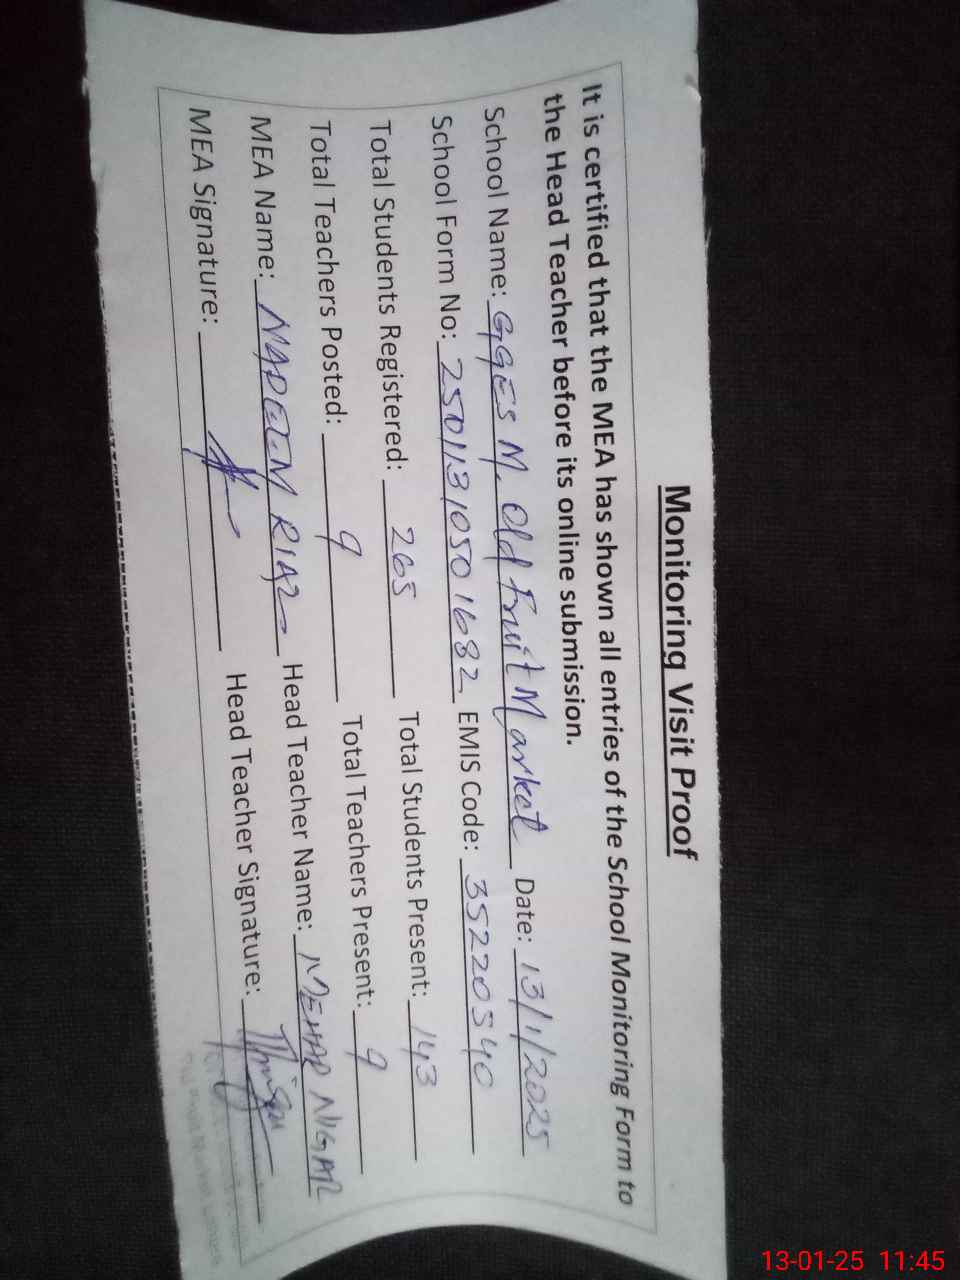 Monitoring Visit Proof
It is certified that the MEA has shown all entries of the School Monitoring Form to
the Head Teacher before its online submission.
School Name: GGES M. Old Fruit Market Date: 13/1/2025
School Form No: 2501131050 1682 EMIS Code: 35220540
Total Students Registered: 265 Total Students Present: 143
Total Teachers Posted: 9 Total Teachers Present: 9
MEA Name: NADEEM RIAZ Head Teacher Name: MEHAR NIGAR
MEA Signature: Head Teacher Signature:
13-01-25 11:45